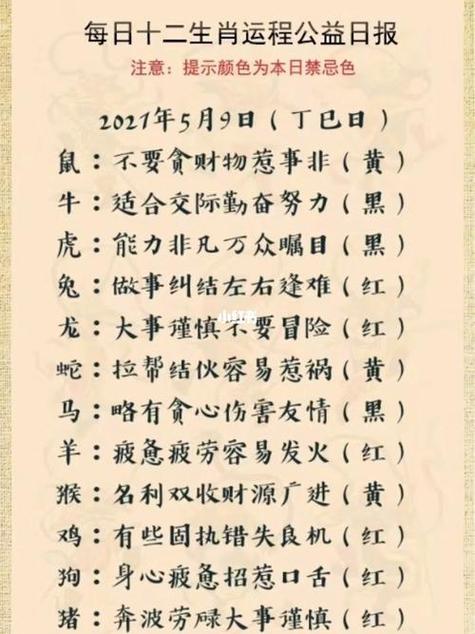 每日十二生肖运程公益日报
注意：提示颜色为本日禁忌色
2021年5月9日（丁巳日）
鼠：不要贪财物惹事非（黄）
牛：适合交际勤奋努力（黑）
虎：能力非凡万众瞩目（黑）
兔：做事纠结左右逢难（红）
小红书
龙：大事谨慎不要冒险（红）
蛇：拉帮结伙容易惹祸（黄）
马：略有贪心伤害友情（黑）
羊：疲惫疲劳容易发火（红）
猴：名利双收财源广进（黄）
鸡：有些固执错失良机（红）
狗：身心疲惫招惹口舌（红）
猪：奔波劳碌大事谨慎（红）